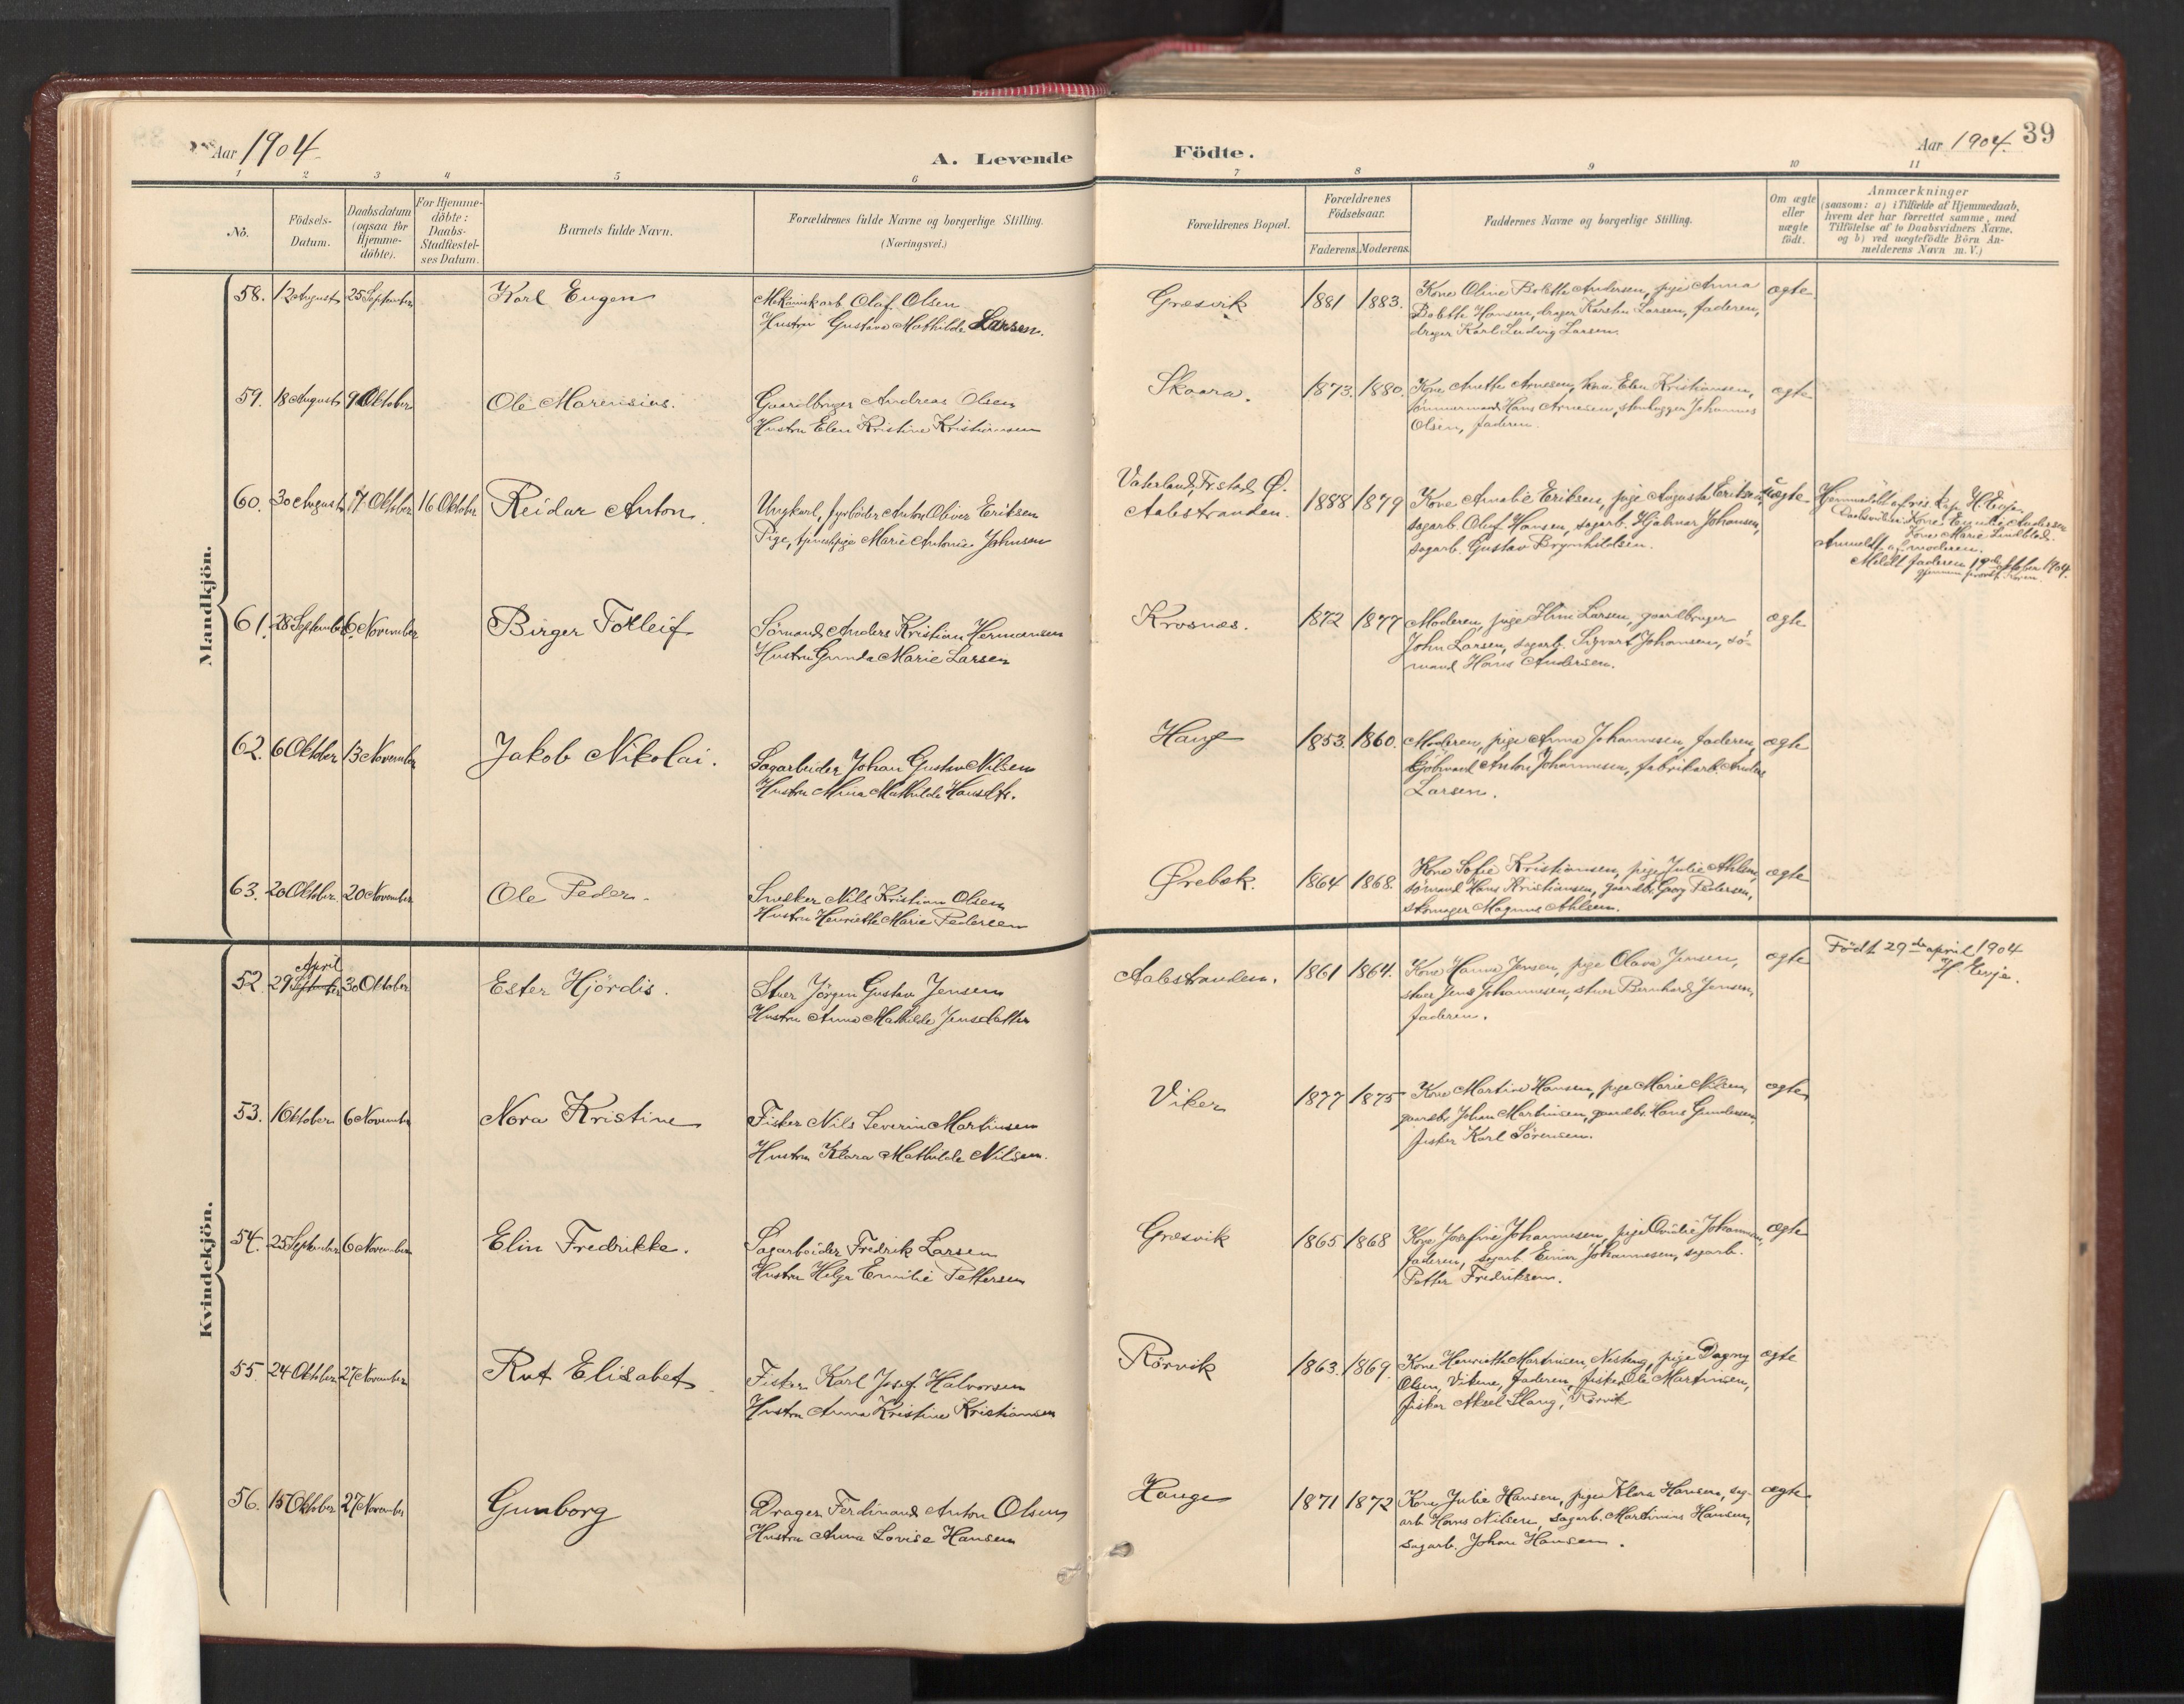 Aar 1904.
A. Levende Födte.
Aar 1904. 39
1 2 3 4 5 6 7 8 9 10 11
No.
Födsels-
Datum.
Daabsdatum
(ogsaa for
Hjemme-
døbte).
For Hjemme-
døbte:
Daabs-
Stadfæstel-
ses Datum.
Barnets fulde Navn.
Forældrenes fulde Navne og borgerlige Stilling.
(Næringsvei.)
Forældrenes Bopæl.
Forældrenes
Födselsaar.
Faderens. Moderens.
Faddernes Navne og borgerlige Stilling.
Om ægte
eller
uægte
født.
Anmærkninger
(saasom: a) i Tilfælde af Hjemmedaab,
hvem der har forrettet samme, med
Tilføielse af to Daabsvidners Navne,
og b) ved uægtefødte Börn An-
melderens Navn m. V.)
Mandkjön.
58. 12 August 25 September Karl Eugen
Mekanikarb Olaf Olsen
Hustru Gustava Mathilde Larsen.
Græsvik 1881 1883.
Kone Oline Bolette Andersen, pige Anna
Bolette Hansen, drager Karsten Larsen, faderen,
drager Karl Ludvig Larsen.
ægte
59. 18 August 9 Oktober Ole Marensius.
Gaardbruger Andreas Olsen
Hustru Elen Kristine Kristiansen
Skaara. 1873. 1880.
Kone Anette Arnesen, kone Elen Kristiansen,
tömmermand Hans Arnesen, stenhugger Johannes
Olsen, faderen.
ægte
60. 30 August 7 Oktober 16 Oktober Reidar Anton.
Ungkarl, fyrböder Anton Oliver Eriksen
Pige, tjenestpige Marie Antonie Johnsen
Vaterland, Fr.stad, Ø.
Aalestranden. 1888 1879
Kone Amalie Eriksen, pige Augusta Eriksen,
sagarb. Oluf Hansen, sagarb. Hjalmar Johansen,
sagarb. Gustav Brynhildsen.
uægte
Hjemmedöbt af res. kap. H. Eeje.
Daabsvidner: Kone Emilie Andersen
Kone Marie Lindblad.
Anmeldt af moderen.
Meldt faderen 19de oktober 1904.
61. 28 September 6 November Birger Tolleif
Sömand Anders Kristian Hermansen
Hustru Gunda Marie Larsen
Krosnæs. 1872 1877
Moderen, pige Lina Larsen, gaardbruger
John Larsen, sagarb. Sigvart Johansen, sö-
mand Hans Andersen.
ægte
62. 6 Oktober 13 November Jakob Nikolai.
Sagarbeider Johan Gustav Nilsen
Hustru Mina Mathilde Hansdtr.
Hauge 1853. 1860.
Moderen, pige Anna Johannesen, faderen,
Gjöbmand Anton Johannesen, fabrikarb. Anders
Larsen.
ægte
63. 20 Oktober. 20 November Ole Peder.
Snekker Nils Kristian Olsen
Hustru Henriette Marie Pedersen
Ørebæk. 1864 1868.
Kone Sofie Kristiansen, pige Julie Ahlsen,
sömand Hans Kristiansen, gaardbr. Georg Pedersen,
skomager Magnus Ahlsen.
ægte
Kvindekjön.
April
52. 29 September 30 Oktober Ester Hjördis.
Stuer Jörgen Gustav Jensen
Hustru Anna Mathilde Jensdatter
Aalestranden. 1861 1864.
Kone Hanna Jensen, pige Olava Jensen,
stuer Jens Johannesen, stuer Bernhard Jensen,
faderen.
ægte
Födt 29de april 1904
H. Eeje.
53. 1 Oktober 6 November Nora Kristine
Fisker Nils Severin Martinsen
Hustru Klara Mathilde Nilsen.
Viker 1877 1875
Kone Martine Hansen, pige Marie Nilsen,
gaardbr. Johan Martinsen, gaardbr. Hans Gundersen,
fisker Karl Sörensen.
ægte
54. 25 September 6 November Elin Fredrikke.
Sagarbeider Fredrik Larsen
Hustru Helga Emilie Pettersen
Græsvik 1865 1868
Kone Josefine Johannesen, pige Ovidie Johannesen,
faderen, sagarb. Einar Johannesen, sagarb.
Petter Fredriksen.
ægte
55. 24 Oktober 27 November Rut Elisabet
Fisker Karl Josef Halvorsen
Hustru Anna Kristine Kristiansen
Rörvik 1863. 1869.
Kone Henriette Martinsen, pige Dagny
Olsen, Vikene, faderen, fisker Ole Martinsen,
fisker Aksel Slang, Rörvik
ægte
56. 15 Oktober 27 November Gunborg
Drager Ferdinand Anton Olsen
Hustru Anna Lovise Hansen
Hauge 1871 1872
Kone Julie Hansen, pige Klara Hansen, sag-
arb. Hans Nilsen, sagarb. Martinius Hansen,
sagarb. Johan Hansen.
ægte